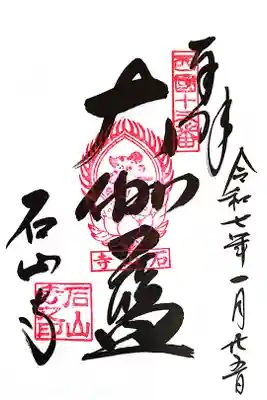 奉拝
令和七年一月廿五日
西国十三番
大伽藍
石山寺
石山寺
石山寺印